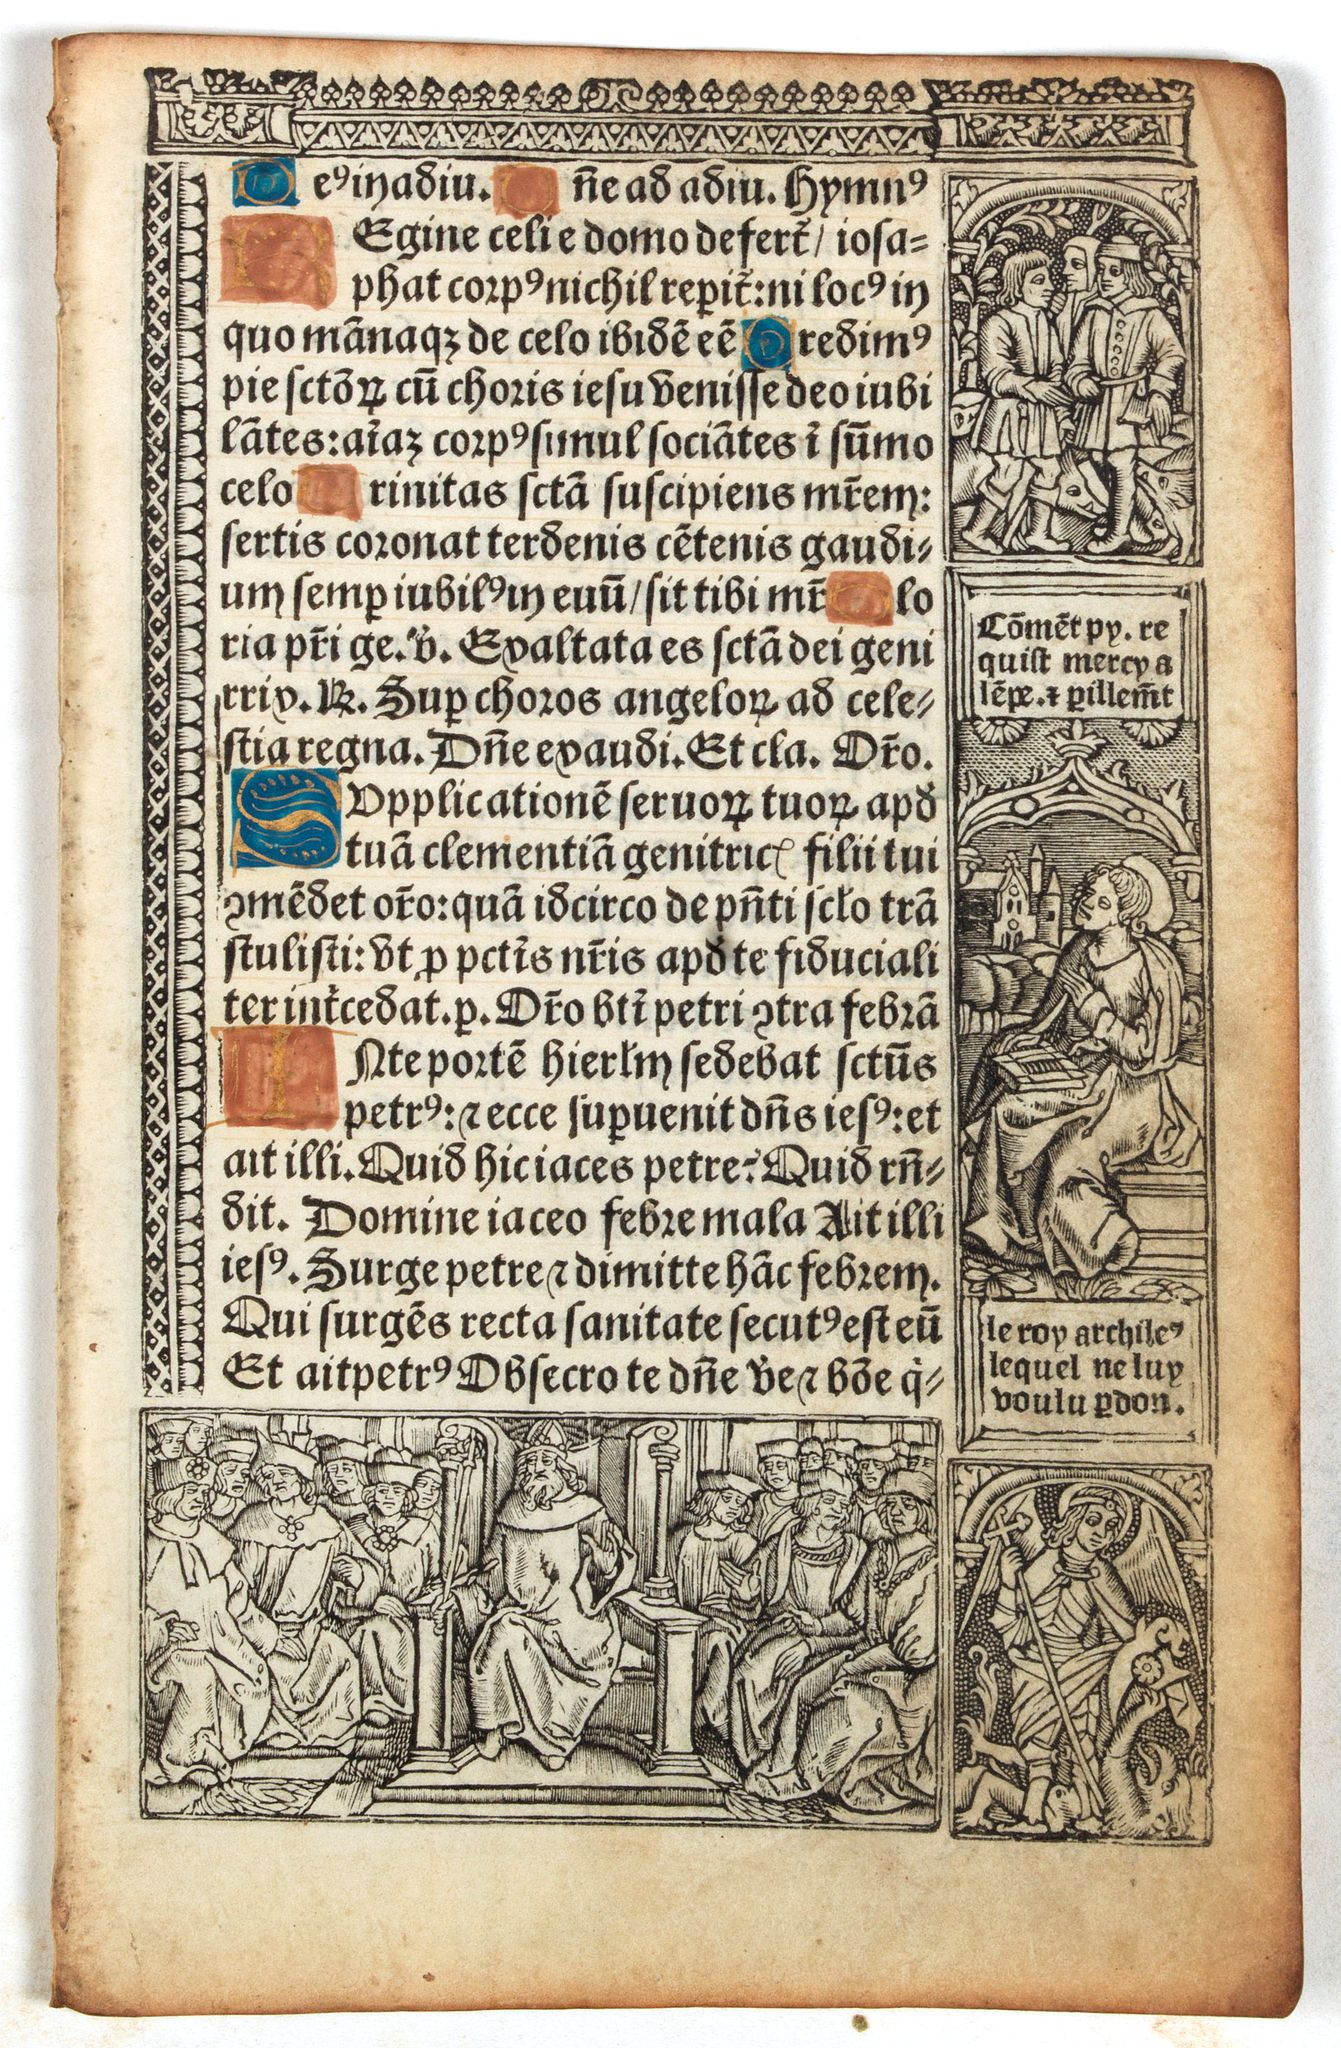 De⁹ in adiu. Dñe ad adiu. Hymn⁹
REgine celi e domo defert̄ / iosa=
phat corp⁹ nichil reperit̄: ni loc⁹ in
quo mānaqȝ de celo ibidē eē Credim⁹
pie sctōꝝ cū choris iesu venisse deo iubi
lātes: aīaȝ corp⁹ simul sociātes ī sūmo
celo Trinitas sctā suscipiens mr̄em:
sertis coronat terdenis cētenis gaudi=
um semꝑ iubil⁹ in euū / sit tibi mr̄ Glo
ria pr̄i ge. v̄. Exaltata es sctā dei geni
trix. ℟. Suꝑ choros angeloꝝ ad cele=
stia regna. Dñe exaudi. Et cla. Or̄o.
SUpplicationē seruoꝝ tuoꝝ apd̄
tuā clementiā genitricꝭ filii tui
ꝯmēdet or̄o: quā idcirco de pñti sclo trā
stulisti: vt ꝓ pctīs nr̄is apd̄ te fiduciali
ter int̄cedat. p. Or̄o bt̄i petri ꝯtra febrā
ANte portē hierlm̄ sedebat sctūs
petr⁹: ⁊ ecce suꝑuenit dñs ies⁹: et
ait illi. Quid hic iaces petre? Quid rñ=
dit. Domine iaceo febre mala Ait illi
ies⁹. Surge petre ⁊ dimitte hāc febrem.
Qui surgēs recta sanitate secut⁹ est eū
Et ait petr⁹ Obsecro te dñe ve ⁊ bōe q̄=
Cōmēt py. re
quist mercy a
lēpe. ⁊ ꝑillemēt
le roy archile⁹
lequel ne luy
voulu ꝑdon.